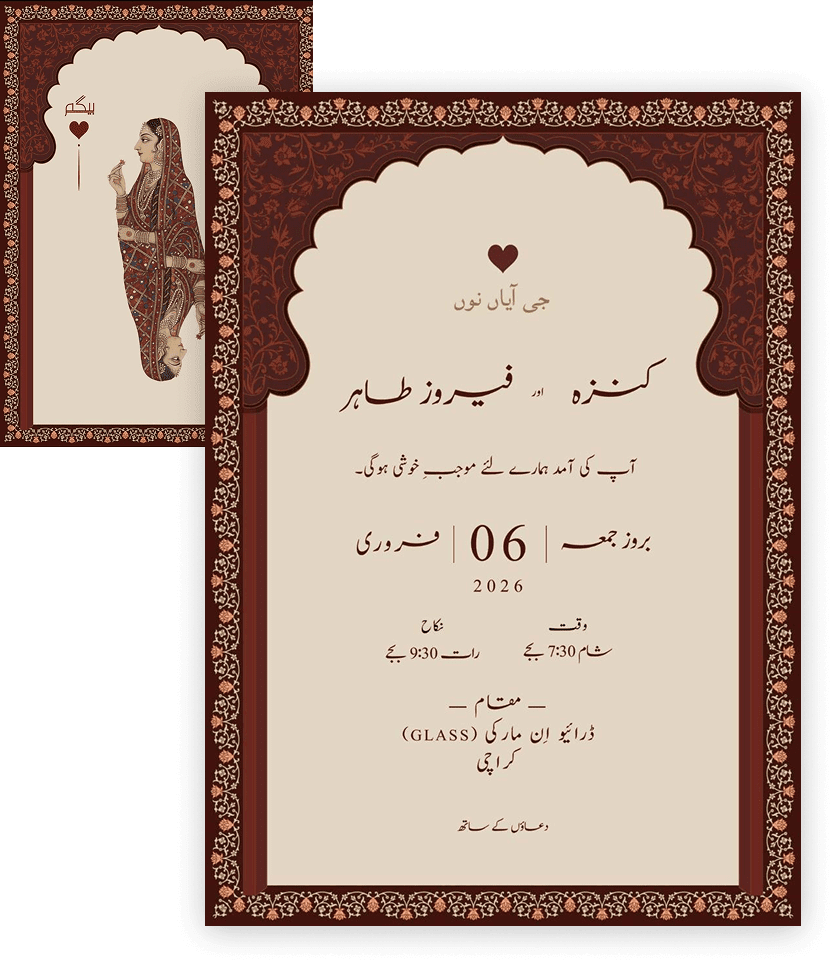 بیگم
جی آیاں نوں
کنزہ اور فیروز طاہر
آپ کی آمد ہمارے لئے موجبِ خوشی ہوگی۔
بروز جمعہ | 06 | فروری
2026
وقت نکاح
شام 7:30 بجے رات 9:30 بجے
— مقام —
ڈرائیو اِن مارکی (GLASS)
کراچی
دعاؤں کے ساتھ